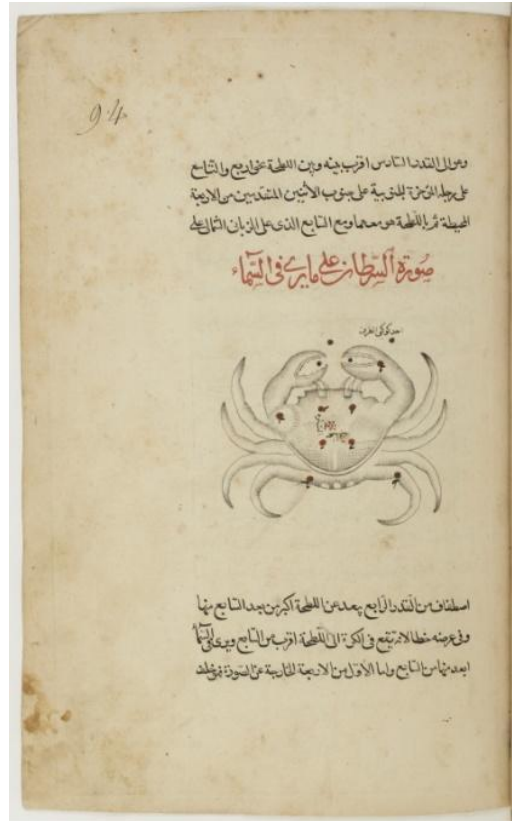 94
وهو الى القدر السادس اقرب بينه وبين اللطخة نحو اربع والتاسع
على رجله المؤخرة الجنوبية على جنوب الاثنين المتقدمين من الاربعة
المحيطة ثم باللطخة هو معهما ومع السابع الذى على الزبانى الشمالى على
صورة السرطان على ما يرى فى السماء
احد كوكبى
اصطفاف من القدر الرابع بعده عن اللطخة اكبر من بعد السابع منها
وفى عرضه غلط لانه يقع فى الكرة الى اللطخة اقرب من السابع ويرى فى السماء
ابعد منها من السابع واما الاول من الاربعة الخارجة عن الصورة فهو خلف